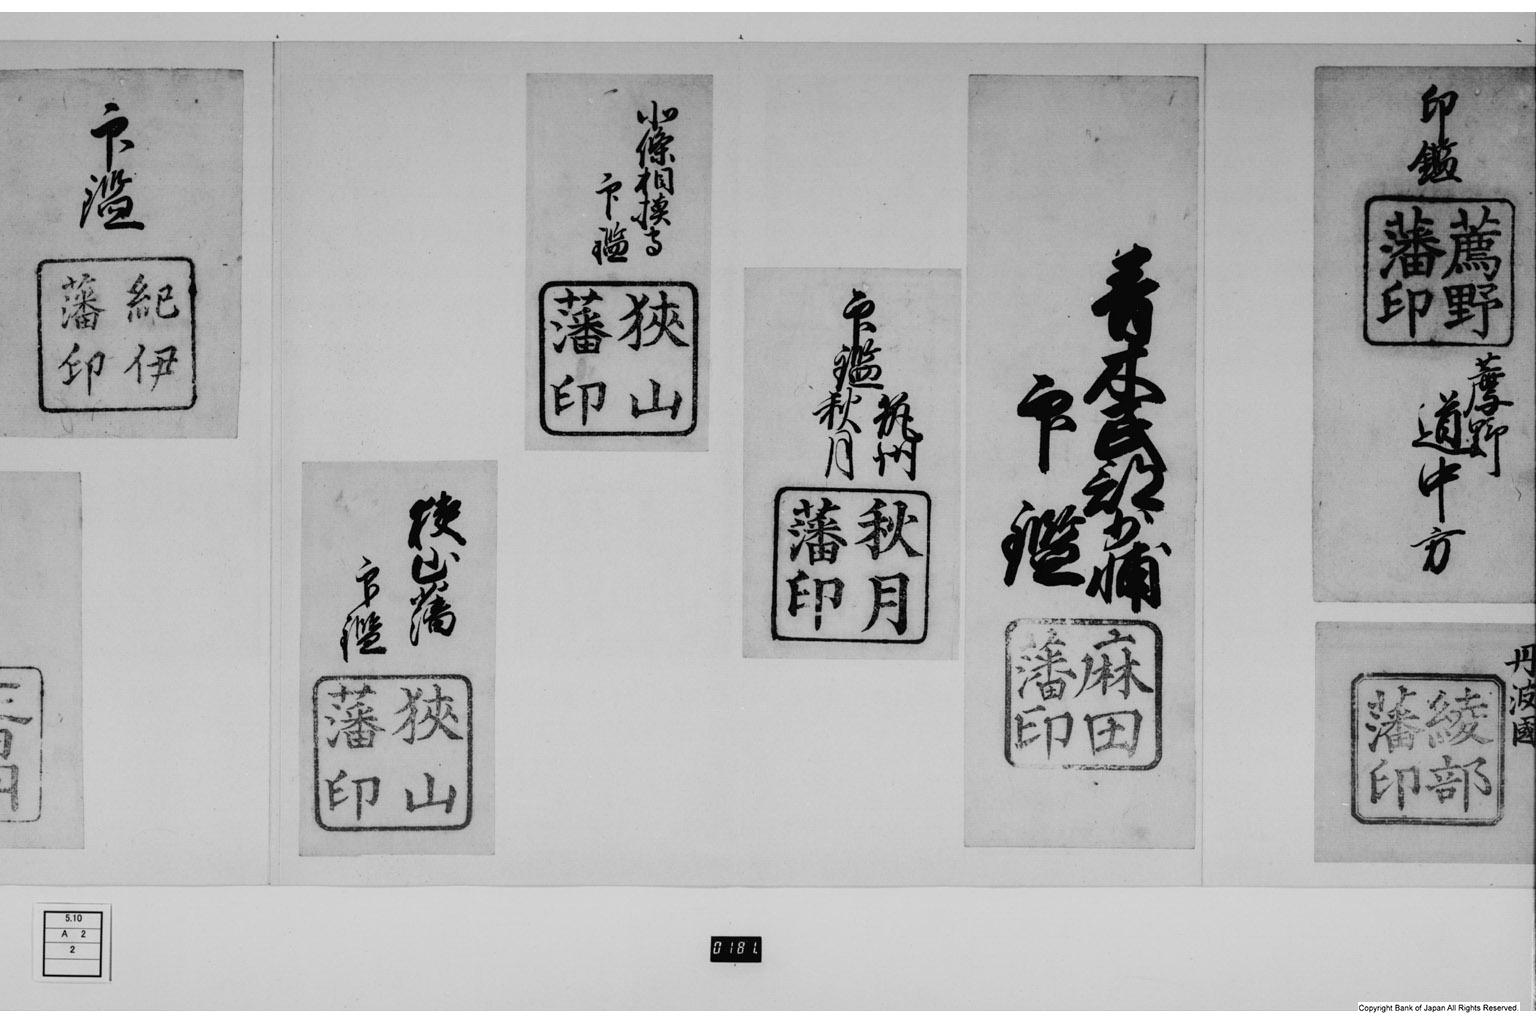 印鑑
薦野
藩印
薦野
道中方
丹波國
綾部
藩印
青木民部少輔
印鑑
麻田
藩印
印鑑
筑州
秋月
秋月
藩印
北條相摸守
印鑑
狭山
藩印
狭山藩
印鑑
狭山
藩印
印鑑
紀伊
藩印
5.10
A 2
2
0181
Copyright Bank of Japan All Rights Reserved.